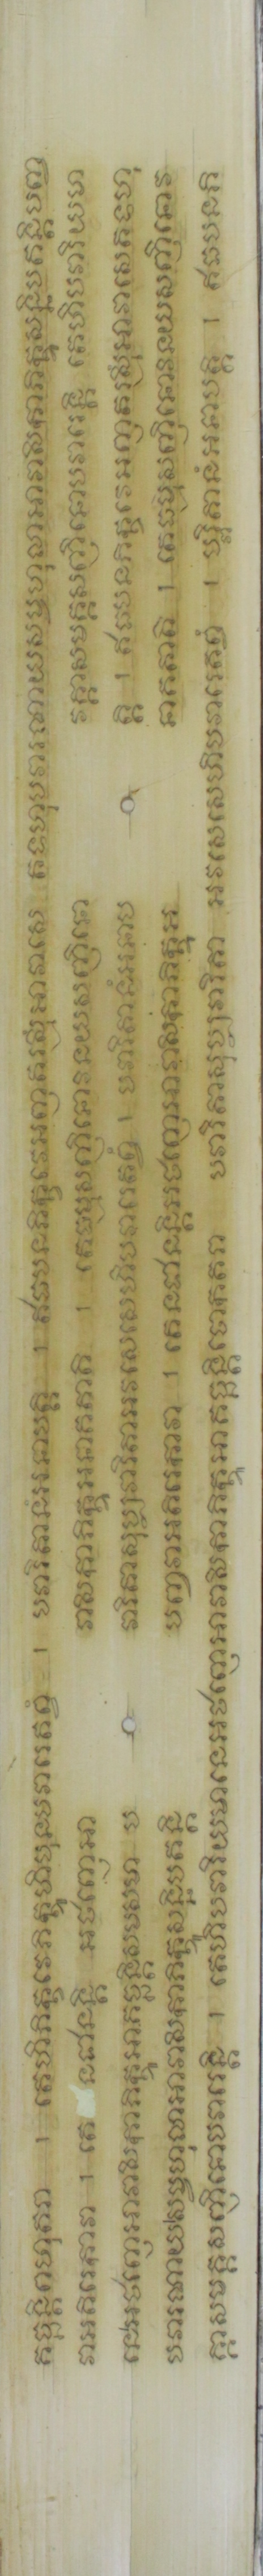 កច្ឆន្តិពហុតរា ។ តេហិភិក្ខវេភិក្ខូហិបុនបវារេតព្វំ ។ បវារិតានំអនាបត្តិ ។ ឥធបនភិក្ខវេអញ្ញតរស្មិំអាវាសេ តទហុបវារណាយសម្ពហុលាអាវាសិកាភិក្ខូសន្និបតន្តិបញ្ច
វាអតិរេកាវា ។ តេ នជានន្តិ អថញ្ញេអា វាសិកាភិក្ខូអនាគតាតិ ។ តេធម្មសញ្ញិនោវិនយសញ្ញិនោ វគ្គាសមគ្គសញ្ញិនោបវារេន្តិ តេហិបវារិយមា
នេអថញ្ញេអាវាសិកាភិក្ខូអាគច្ឆន្តិសមសមា ប វារិតាសុប្បវារិតាអវសេសេហិបវារេតព្វំ ។ បវារិតានំអនាប ត្តិ ។ ឥធបនភិក្ខវេអញ្ញតរស្មិំអាវាសេតទហុ
បវារណាយសម្ពហុលាអាវាសិកាភិក្ខូសន្និបតន្តិ បញ្ចវាអតិរេកាវា ។ តេនជានន្តិអថញ្ញេអាវាសិកាភិក្ខូអ នាគតាតិ ។ តេធម្មសញ្ញិនោវិនយសញ្ញិនោវ
គ្គាសមគ្គសញ្ញិនោបវារេន្តិ ។ តេហិបវារិយមានេអថញ្ញេអាវាសិកាភិក្ខូអាគច្ឆន្តិថោកតរា បវារិតាសុប្បវារិតា អវសេសេហិបវារេតព្វំ ។ អនាបត្តិ ។ ឥធបនភិ